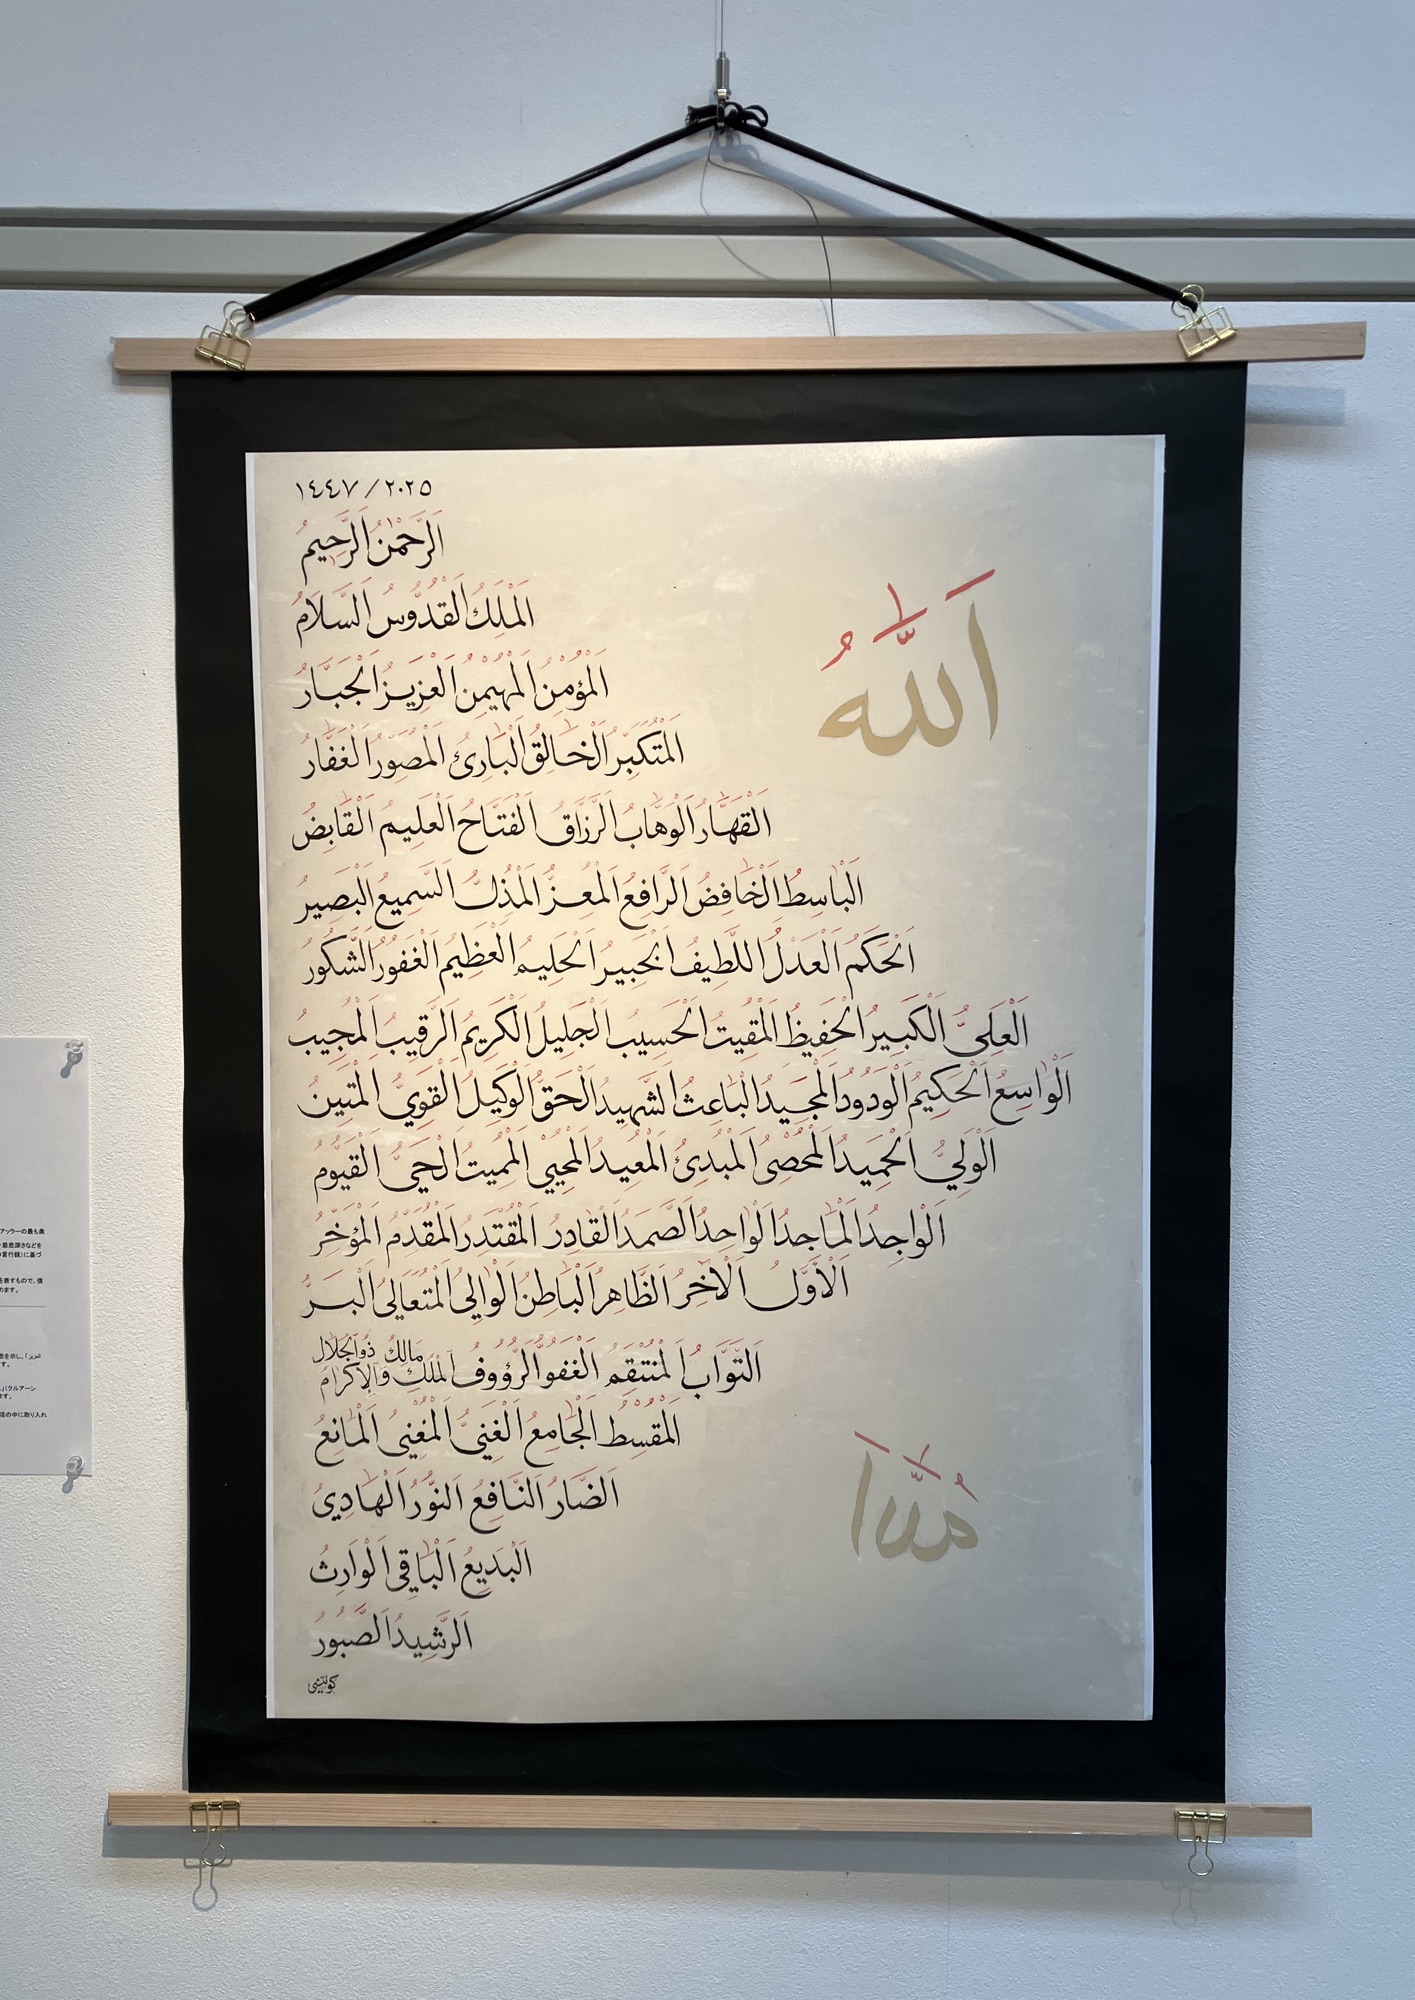 ١٤٤٧/٢٠٢٥
اَلرَّحْمٰنُ اَلرَّحِيمُ
اَلْمَلِكُ اَلْقُدُّوسُ اَلسَّلَامُ
اَللّٰهُ
اَلْمُؤْمِنُ اَلْمُهَيْمِنُ اَلْعَزِيزُ اَلْجَبَّارُ
اَلْمُتَكَبِّرُ اَلْخَالِقُ اَلْبَارِئُ اَلْمُصَوِّرُ اَلْغَفَّارُ
اَلْقَهَّارُ اَلْوَهَّابُ اَلرَّزَّاقُ اَلْفَتَّاحُ اَلْعَلِيمُ اَلْقَابِضُ
اَلْبَاسِطُ اَلْخَافِضُ اَلرَّافِعُ اَلْمُعِزُّ اَلْمُذِلُّ اَلسَّمِيعُ اَلْبَصِيرُ
اَلْحَكَمُ اَلْعَدْلُ اَللَّطِيفُ اَلْخَبِيرُ اَلْحَلِيمُ اَلْعَظِيمُ اَلْغَفُورُ اَلشَّكُورُ
اَلْعَلِىُّ اَلْكَبِيرُ اَلْحَفِيظُ اَلْمُقِيتُ اَلْحَسِيبُ اَلْجَلِيلُ اَلْكَرِيمُ اَلرَّقِيبُ اَلْمُجِيبُ
اَلْوَاسِعُ اَلْحَكِيمُ اَلْوَدُودُ اَلْمَجِيدُ اَلْبَاعِثُ اَلشَّهِيدُ اَلْحَقُّ اَلْوَكِيلُ اَلْقَوِيُّ اَلْمَتِينُ
اَلْوَلِيُّ اَلْحَمِيدُ اَلْمُحْصِىُ اَلْمُبْدِئُ اَلْمُعِيدُ اَلْمُحْيِيْ اَلْمُمِيتُ اَلْحَىُّ اَلْقَيُّومُ
اَلْوَاجِدُ اَلْمَاجِدُ اَلْوَاحِدُ اَلصَّمَدُ اَلْقَادِرُ اَلْمُقْتَدِرُ اَلْمُقَدِّمُ اَلْمُؤَخِّرُ
اَلْأَوَّلُ اَلْآخِرُ اَلظَّاهِرُ اَلْبَاطِنُ اَلْوَالِىُ اَلْمُتَعَالِىُ اَلْبَرُّ
اَلتَّوَّابُ اَلْمُنْتَقِمُ اَلْعَفُوُّ اَلرَّؤُوفُ مَالِكُ اَلْمُلْكِ ذُو اَلْجَلَالِ وَالْإِكْرَامُ
اَلْمُقْسِطُ اَلْجَامِعُ اَلْغَنِىُّ اَلْمُغْنِىُ اَلْمَانِعُ
اَلضَّارُ اَلنَّافِعُ اَلنُّورُ اَلْهَادِىُ
اَلْبَدِيعُ اَلْبَاقِى اَلْوَارِثُ
اَلرَّشِيدُ اَلصَّبُورُ
アッラーの最も美
慈悲深さなどを
言行録)に基づ
を表すもので、信
めます。
を示し、「العزيز
す。
パクルアーン
ます。
活の中に取り入れ